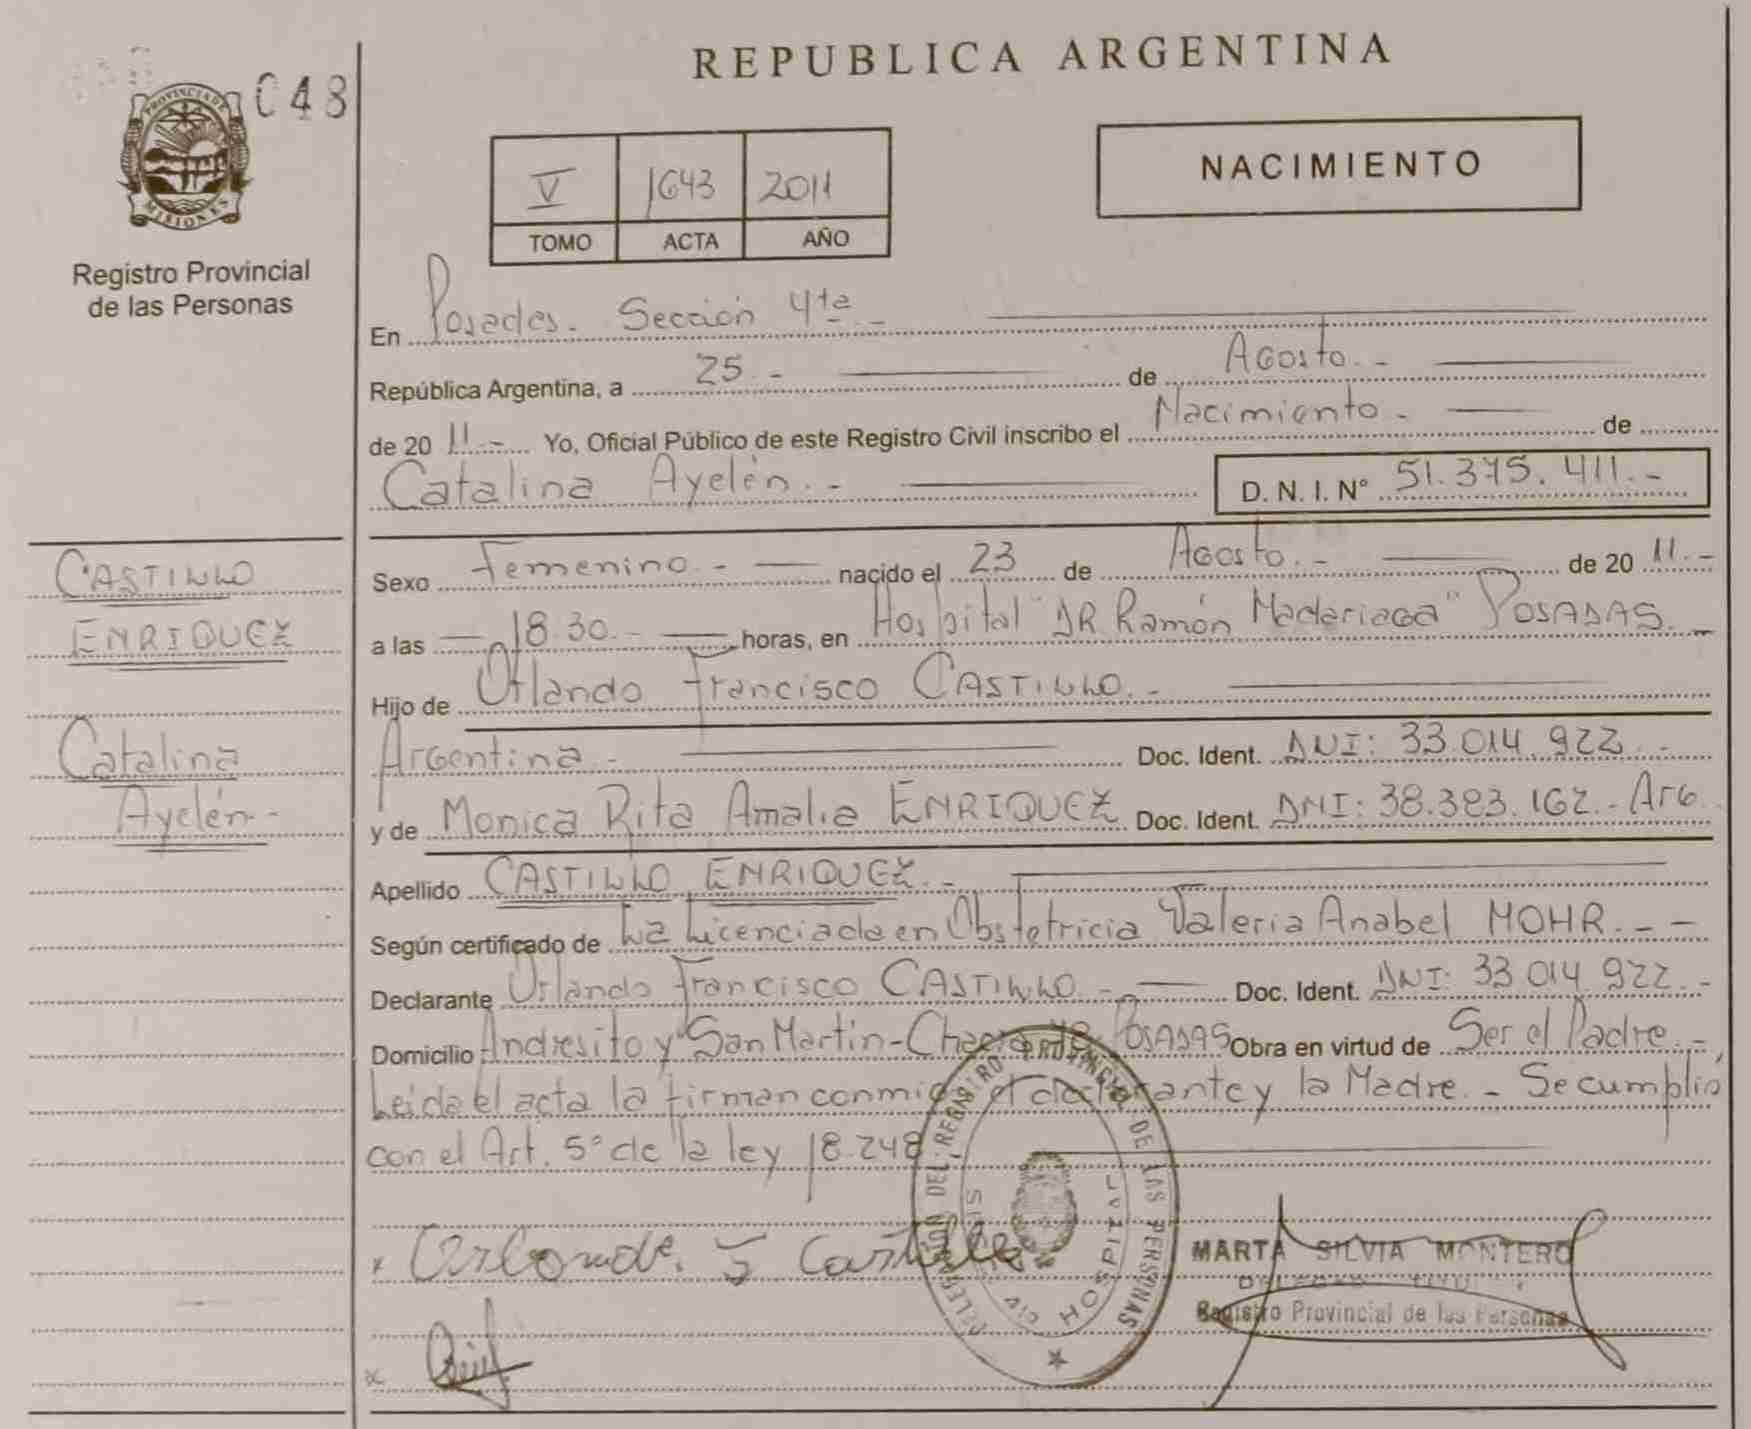 REPUBLICA ARGENTINA
048
PROVINCIA DE
MISIONES
Registro Provincial
de las Personas
V 1643 2011
TOMO ACTA AÑO
NACIMIENTO
En Posadas. Sección 4ta.-
República Argentina, a 25.- de Agosto.-
de 20 11.- Yo, Oficial Público de este Registro Civil inscribo el Nacimiento.- de
Catalina Ayelén.- D. N. I. N° 51.375.411.-
CASTILLO
ENRIQUEZ
Catalina
Ayelén.-
Sexo Femenino.- nacido el 23 de Agosto.- de 20 11.-
a las 18.30.- horas, en Hospital "DR. Ramón Madariaga" POSADAS.
Hijo de Orlando Francisco CASTILLO.-
Argentina.- Doc. Ident. DNI: 33.014.922.-
y de Monica Rita Amalia ENRIQUEZ Doc. Ident. DNI: 38.383.162.- Arg.
Apellido CASTILLO ENRIQUEZ.-
Según certificado de La Licenciada en Obstetricia Valeria Anabel MOHR.-
Declarante Orlando Francisco CASTILLO.- Doc. Ident. DNI: 33.014.922.-
Domicilio Andresito y San Martin-Chacra POSADAS Obra en virtud de Ser el Padre.-
Leida el acta la firman conmigo el declarante y la Madre.- Se cumplió
con el Art. 5° de la ley 18.248
DELEGACIÓN DEL REGISTRO PROVINCIAL DE LAS PERSONAS
HOSPITAL
x Orlando. F Castillo
MARTA SILVIA MONTERO
Registro Provincial de las Personas
x